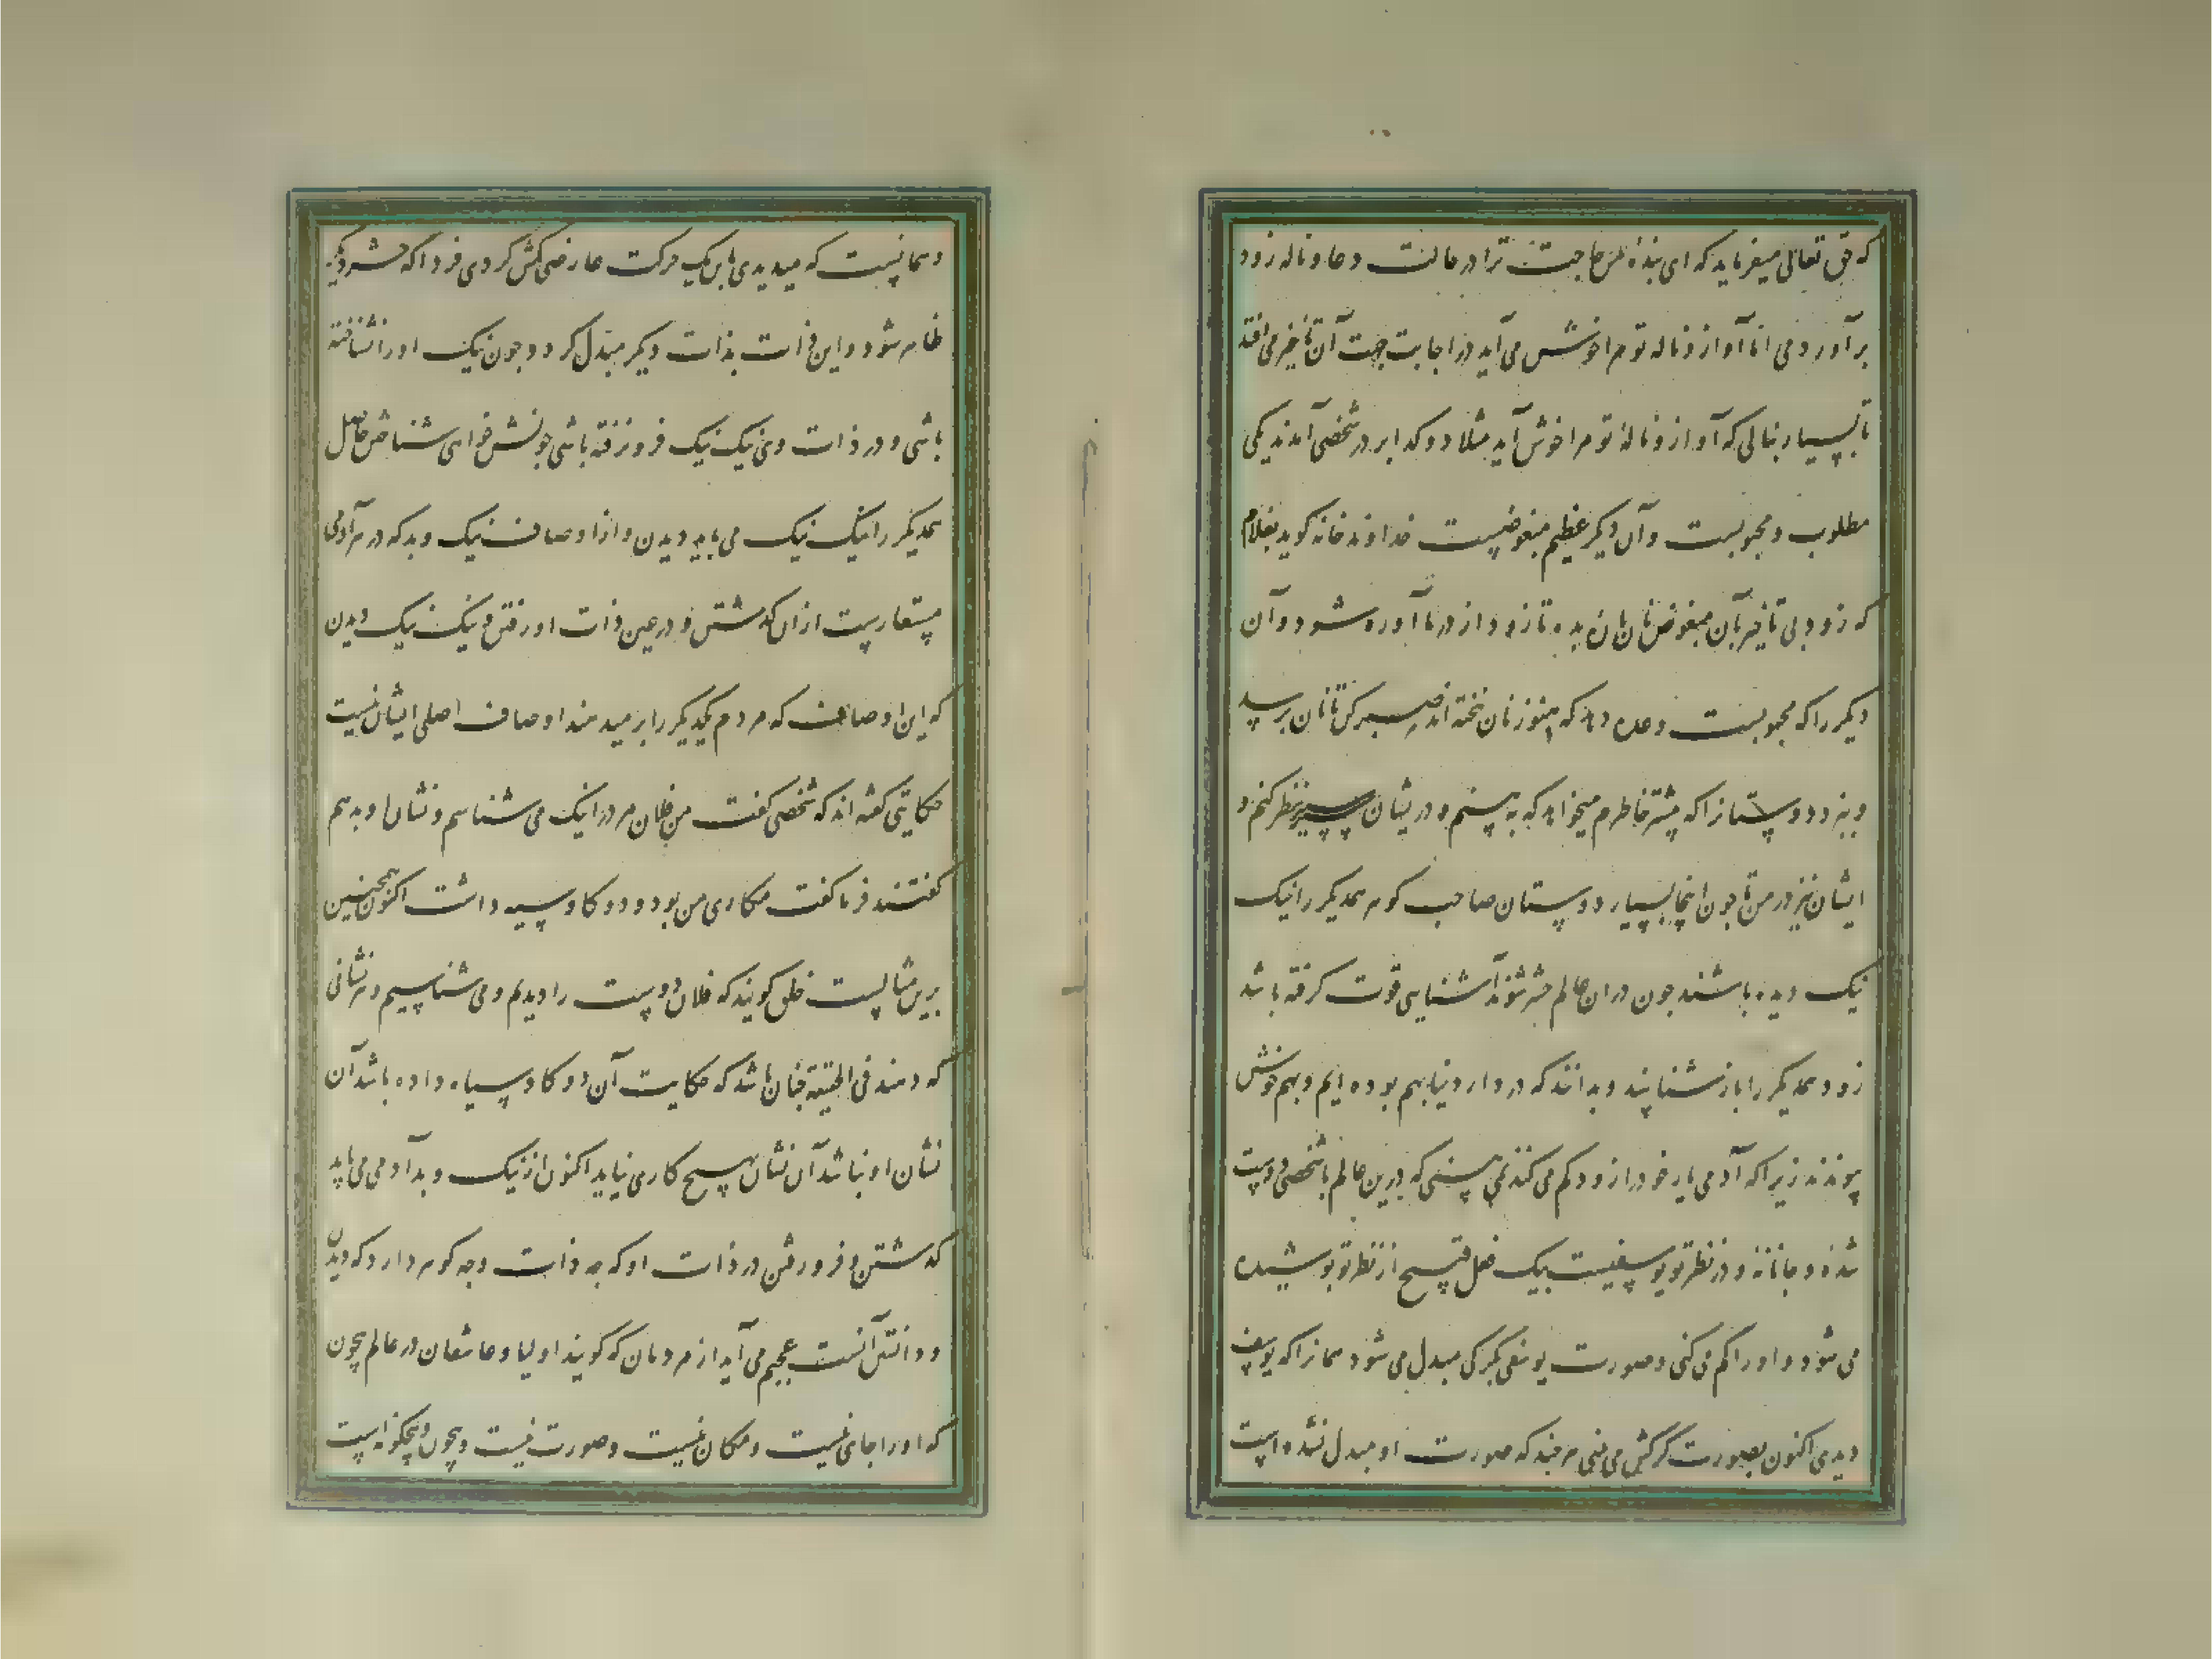 که حق تعالی میفرماید که ای بنده من حاجتت ترا در حالت دعا و ناله زود
برآوردمی اما آواز و ناله تو مرا خوش می آید در اجابت جهت آن تاخیر می افتد
تا بسیار بنالی که آواز و نالهٔ تو مرا خوش آید مثلا دو کدا بر در شخصی آمدند یکی
مطلوب و محبوبست و آن دیکر عظیم مبغوضست خداوند خانه کوید بغلام
که زود بی تاخیر بآن مبغوض نان پاره بده تا زود از در ما آواره شود و آن
دیکر را که محبوبست وعده دهد که هنوز نان نپخته اند صبر کن تا نان برسد
و بپزد دوستانرا که بیشتر خاطرم میخواهد که به بینم و در یشان سیر نظر کنم و
ایشان نیز در من تا چون اینجا بسیار دوستان صاحب کوهر همدیکر را نیک
نیک دیده باشند چون در ان عالم حشر شوند آشنایی قوت کرفته باشد
زود همدیکر را باز شناسند و بدانند که در دار دنیا بهم بوده ایم و بهم خوش
پیوندند زیرا که آدمی یار خود را زود کم می کند نمی بینی که درین عالم با شخصی دوست
شدهٔ و جانانهٔ و در نظر تو یوسفیست بیک فعل قبیح از نظر تو پوشیده
می شود و اورا کم می کنی و صورت یوسفی بکرکی مبدل می شود همانرا که یوسف
دیدی اکنون بصورت کرکش می بینی هر چند که صورت او مبدل نشده است
و همانست که میدیدی باین یک حرکت عارضی کمش کردی فردا که حشر دیکر
ظاهر شود و این ذات بذات دیکر مبدل کردد چون نیک اورا نشناخته
باشی و در ذات وی نیک نیک فرو نرفته باشی چونش خواهی شناختن حاصل
همدیکر را نیک نیک می باید دیدن و از اوصاف نیک و بد که در هر آدمی
مستعارست از ان کذشتن و در عین ذات او رفتن و نیک نیک دیدن
که این اوصاف که مردم یکدیکر را بر میدهند اوصاف اصلی ایشان نیست
حکایتی کفته اند که شخصی کفت من فلان مرد را نیک می شناسم و نشان او بدهم
کفتند فرما کفت مکاری من بود و دو کاو سیه داشت اکنون همچنین
برین مثالست خلق کویند که فلان دوست را دیدیم و می شناسیم و هر نشانی
که دهند فی الحقیقة چنان باشد که حکایت آن دو کاو سیاه داده باشد آن
نشان او نباشد آن نشان هیچ کاری نیاید اکنون از نیک و بد آدمی می باید
کذشتن و فرو رفتن در ذات او که چه ذات و چه کوهر دارد که دیدن
و دانستن آنست عجبم می آید از مردمان که کویند اولیا و عاشقان در عالم بیچون
که اورا جای نیست و مکان نیست و صورت نیست و بیچون و بیچکونه است